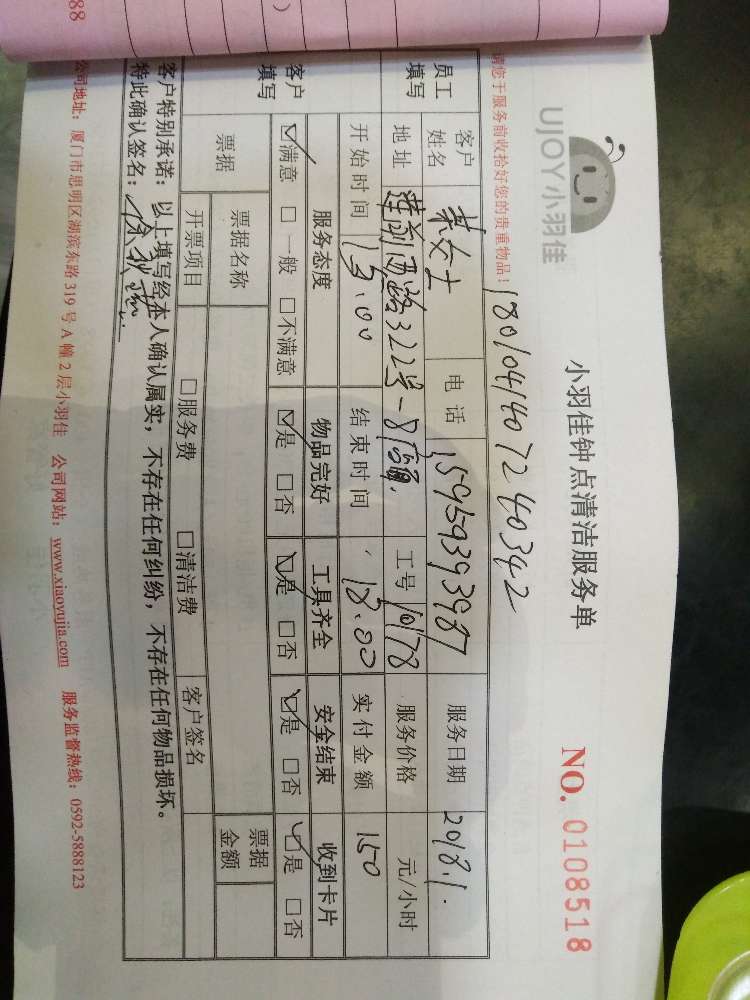 88
UJOY小羽佳
小羽佳钟点清洁服务单
NO. 0108518
请您于服务前收拾好您的贵重物品!
180104140724 40342
员工填写 客户姓名 女士 电话 15959393987 服务日期 2018.1.
地址 莲前西路322号 工号 10178 服务价格 元/小时
开始时间 15.00 结束时间 18.00 实付金额 150
客户填写 服务态度 物品完好 工具齐全 安全结束 收到卡片
☑满意 □一般 □不满意 ☑是 □否 ☑是 □否 ☑是 □否 ☑是 □否
票据 票据名称 票据金额
开票项目 □服务费 □清洁费 客户签名
客户特别承诺:以上填写经本人确认属实,不存在任何纠纷,不存在任何物品损坏。
特此确认签名:
公司地址:厦门市思明区湖滨东路319号A幢2层小羽佳 公司网站:www.xiaoyujia.com 服务监督热线:0592-5888123